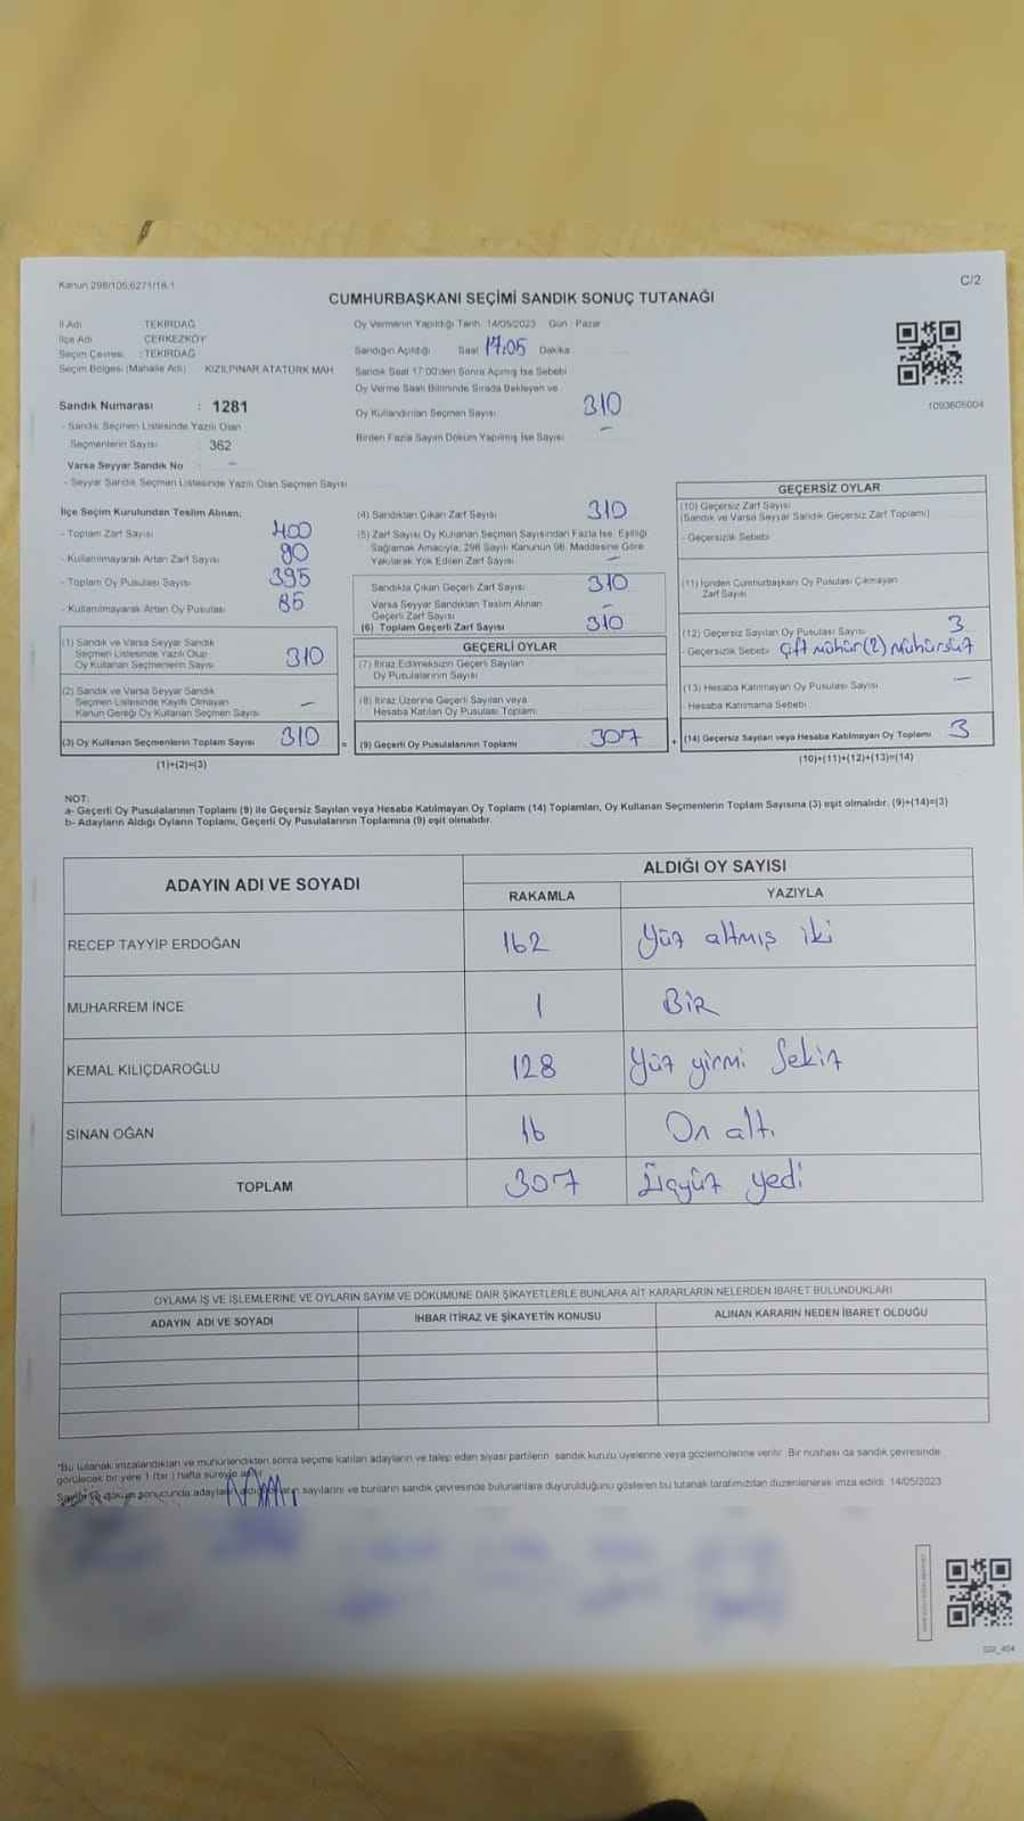 Kanun 298/105,6271/18.1
C/2
CUMHURBAŞKANI SEÇİMİ SANDIK SONUÇ TUTANAĞI
İl Adı : TEKİRDAĞ
İlçe Adı : ÇERKEZKÖY
Seçim Çevresi : TEKİRDAĞ
Seçim Bölgesi (Mahalle Adı) : KIZILPINAR ATATÜRK MAH.
Sandık Numarası : 1281
- Sandık Seçmen Listesinde Yazılı Olan
Seçmenlerin Sayısı : 362
Varsa Seyyar Sandık No : -
- Seyyar Sandık Seçmen Listesinde Yazılı Olan Seçmen Sayısı
Oy Vermenin Yapıldığı Tarih: 14/05/2023 Gün : Pazar
Sandığın Açıldığı Saat 17:05 Dakika
Sandık Saat 17:00'den Sonra Açılmış İse Sebebi
Oy Verme Saati Bitiminde Sırada Bekleyen ve
Oy Kullandırılan Seçmen Sayısı 310
Birden Fazla Sayım Döküm Yapılmış İse Sayısı -
1093605004
İlçe Seçim Kurulundan Teslim Alınan;
- Toplam Zarf Sayısı 400
- Kullanılmayarak Artan Zarf Sayısı 90
- Toplam Oy Pusulası Sayısı 395
- Kullanılmayarak Artan Oy Pusulası 85
(1) Sandık ve Varsa Seyyar Sandık
Seçmen Listesinde Yazılı Olup
Oy Kullanan Seçmenlerin Sayısı 310
(2) Sandık ve Varsa Seyyar Sandık
Seçmen Listesinde Kayıtlı Olmayan
Kanun Gereği Oy Kullanan Seçmen Sayısı -
(3) Oy Kullanan Seçmenlerin Toplam Sayısı 310
(1)+(2)=(3)
(4) Sandıktan Çıkan Zarf Sayısı 310
(5) Zarf Sayısı Oy Kullanan Seçmen Sayısından Fazla İse, Eşitliği
Sağlamak Amacıyla, 298 Sayılı Kanunun 98. Maddesine Göre
Yakılarak Yok Edilen Zarf Sayısı -
Sandıkta Çıkan Geçerli Zarf Sayısı 310
Varsa Seyyar Sandıktan Teslim Alınan
Geçerli Zarf Sayısı -
(6) Toplam Geçerli Zarf Sayısı 310
GEÇERLİ OYLAR
(7) İtiraz Edilmeksizin Geçerli Sayılan
Oy Pusulalarının Sayısı
(8) İtiraz Üzerine Geçerli Sayılan veya
Hesaba Katılan Oy Pusulası Toplamı
= (9) Geçerli Oy Pusulalarının Toplamı 307
GEÇERSİZ OYLAR
(10) Geçersiz Zarf Sayısı
(Sandık ve Varsa Seyyar Sandık Geçersiz Zarf Toplamı)
- Geçersizlik Sebebi
(11) İçinden Cumhurbaşkanı Oy Pusulası Çıkmayan
Zarf Sayısı
(12) Geçersiz Sayılan Oy Pusulası Sayısı 3
- Geçersizlik Sebebi Çift mühür (2) Mühürsüz
(13) Hesaba Katılmayan Oy Pusulası Sayısı -
- Hesaba Katılmama Sebebi
+ (14) Geçersiz Sayılan veya Hesaba Katılmayan Oy Toplamı 3
(10)+(11)+(12)+(13)=(14)
NOT:
a- Geçerli Oy Pusulalarının Toplamı (9) ile Geçersiz Sayılan veya Hesaba Katılmayan Oy Toplamı (14) Toplamları, Oy Kullanan Seçmenlerin Toplam Sayısına (3) eşit olmalıdır. (9)+(14)=(3)
b- Adayların Aldığı Oyların Toplamı, Geçerli Oy Pusulalarının Toplamına (9) eşit olmalıdır.
ADAYIN ADI VE SOYADI
ALDIĞI OY SAYISI
RAKAMLA YAZIYLA
RECEP TAYYİP ERDOĞAN 162 Yüz altmış iki
MUHARREM İNCE 1 BİR
KEMAL KILIÇDAROĞLU 128 Yüz yirmi Sekiz
SİNAN OĞAN 16 On altı
TOPLAM 307 Üçyüz yedi
OYLAMA İŞ VE İŞLEMLERİNE VE OYLARIN SAYIM VE DÖKÜMÜNE DAİR ŞİKAYETLERLE BUNLARA AİT KARARLARIN NELERDEN İBARET BULUNDUKLARI
ADAYIN ADI VE SOYADI
İHBAR İTİRAZ VE ŞİKAYETİN KONUSU
ALINAN KARARIN NEDEN İBARET OLDUĞU
*Bu tutanak imzalandıktan ve mühürlendikten sonra seçime katılan adayların ve talep eden siyasi partilerin sandık kurulu üyelerine veya gözlemcilerine verilir. Bir nüshası da sandık çevresinde
görülecek bir yere 1 (bir) hafta süreyle asılır.
Sayım ve döküm sonucunda adayların aldığı oyların sayılarını ve bunların sandık çevresinde bulunanlara duyurulduğunu gösteren bu tutanak tarafımızdan düzenlenerek imza edildi. 14/05/2023